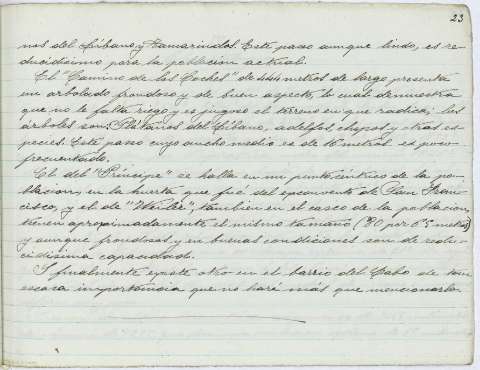 23
nos del Líbano y Tamarindos. Este paseo aunque lindo, es re-
ducidísimo para la población actual.
El "Camino de los Coches" de 444 metros de largo, presenta
un arbolado frondoso y de buen aspecto, lo cual demuestra
que no le falta riego y es jugoso el terreno en que radica; los
árboles son: Plátanos del Líbano, adelfas, chopos y otras es-
pecies. Este paseo cuyo ancho medio es de 16 metros es poco
frecuentado.
El del "Príncipe" se halla en un punto céntrico de la po-
blación, en la huerta que fué del exconvento de San Fran-
cisco, y el de "Weyler", también en el casco de la población,
tienen aproximadamente el mismo tamaño (90 por 65 metros)
y aunque frondosos y en buenas condiciones son de redu-
cidísima capacidad.
Y finalmente existe otro en el barrio del Cabo de tan
escasa importancia que no haré más que mencionarlo.